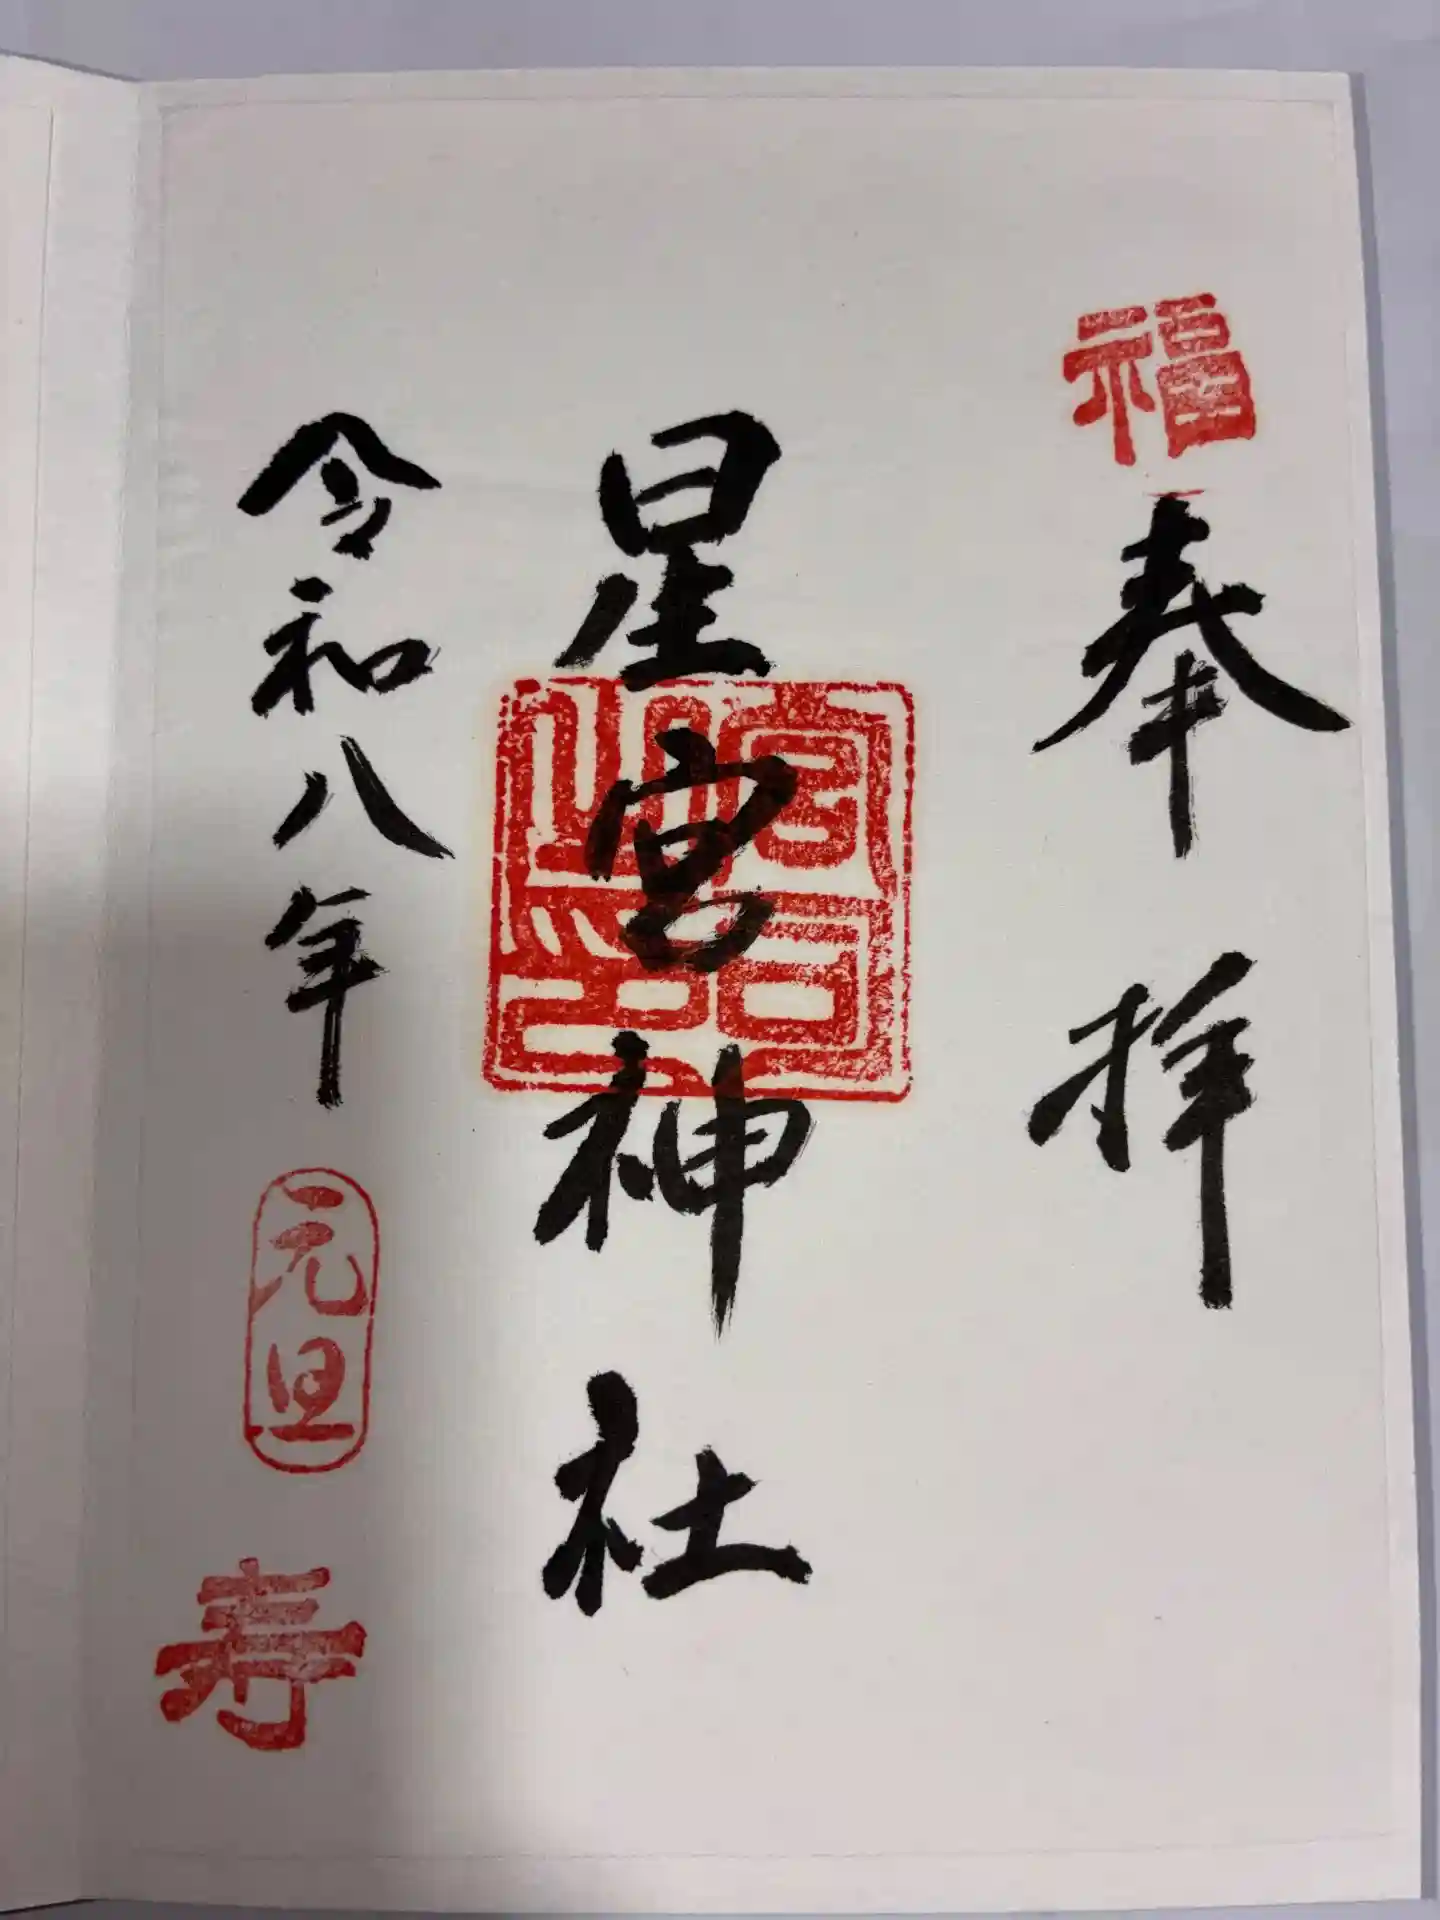 福
奉拝
星宮神社
令和八年
元旦
寿